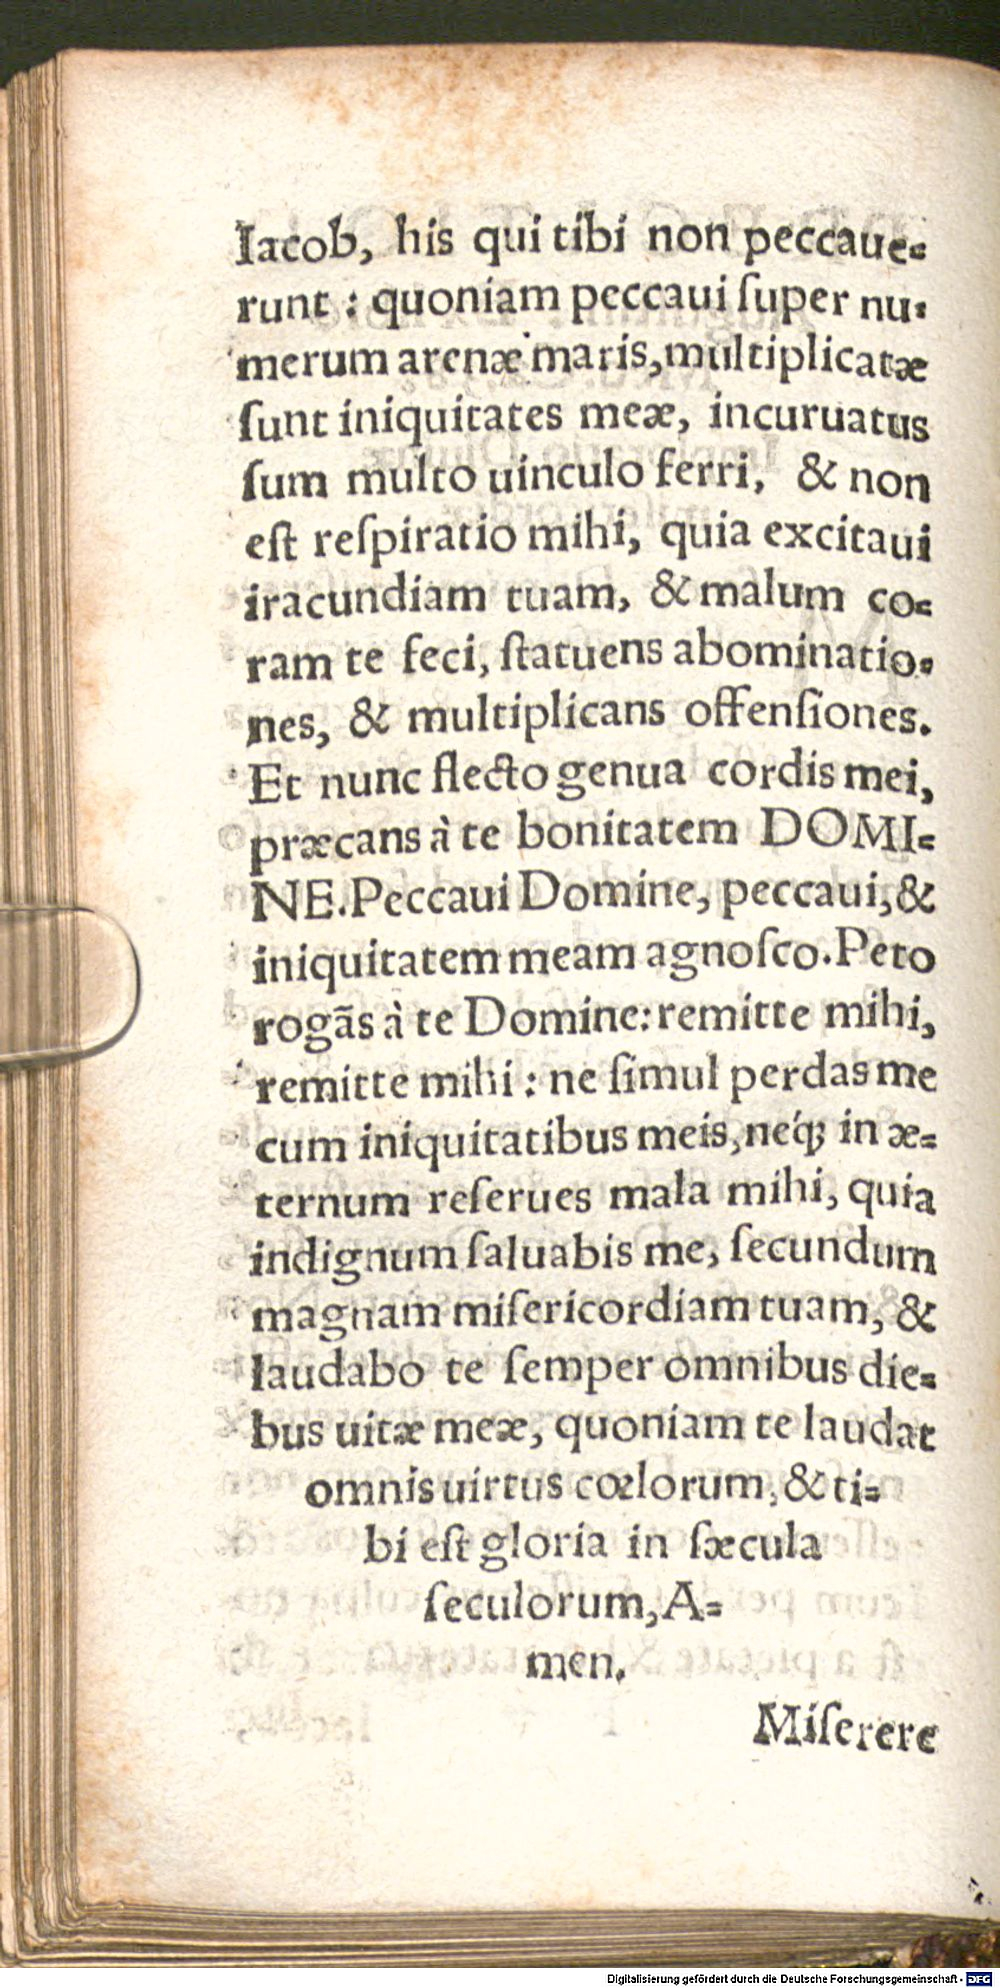 Iacob, his qui tibi non peccaue-
runt : quoniam peccaui ſuper nu-
merum arenæ maris, multiplicatæ
ſunt iniquitates meæ, incuruatus
ſum multo uinculo ferri, & non
eſt reſpiratio mihi, quia excitaui
iracundiam tuam, & malum co-
ram te feci, ſtatuens abominatio-
nes, & multiplicans offenſiones.
Et nunc flecto genua cordis mei,
præcans à te bonitatem DOMI-
NE. Peccaui Domine, peccaui, &
iniquitatem meam agnoſco. Peto
rogãs à te Domine: remitte mihi,
remitte mihi : ne ſimul perdas me
cum iniquitatibus meis, neq́; in æ-
ternum reſerues mala mihi, quia
indignum ſaluabis me, ſecundum
magnam miſericordiam tuam, &
laudabo te ſemper omnibus die-
bus uitæ meæ, quoniam te laudat
omnis uirtus cœlorum, & ti-
bi eſt gloria in ſæcula
ſeculorum, A-
men.
Miſerere
Digitalisierung gefördert durch die Deutsche Forschungsgemeinschaft - DFG